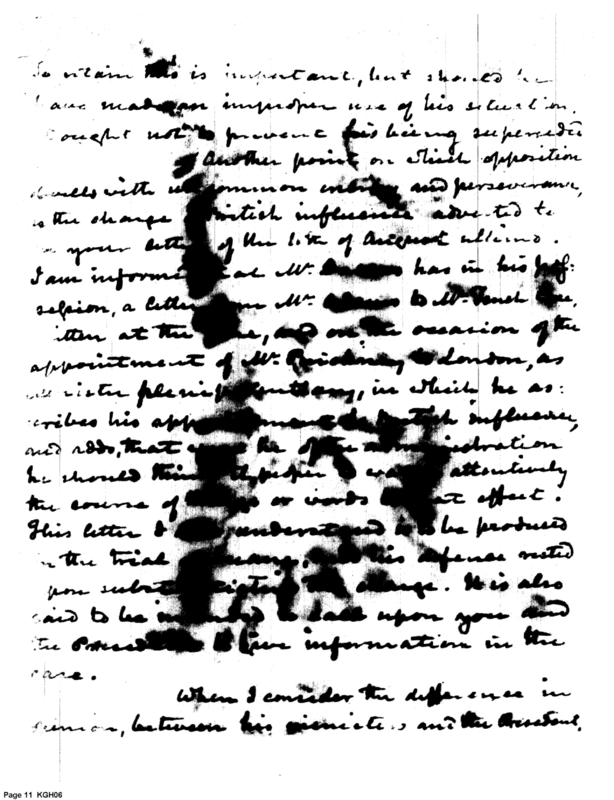 To retain            is important, but should he
have made an improper use of his situation,
ought not to prevent his being superseded
Another point on which opposition
dwells with uncommon            and perseverance,
is the charge            British influence adverted to
in your letter of the 10th of August ultimo.
I am informed that Mr.            has in his pos:
session, a letter from Mr. Adams to Mr. Tench Coxe,
written at the            , and on the occasion of the
appointment of Mr. Pinckney to London, as
minister plenipotentiary, in which he as:
cribes his appointment to British influence,
and adds, that were he of the administration
he should think it proper to watch attentively
the course of            or words to that effect.
This letter I            understand is to be produced
in the trial            , and his defence rested
upon substantiating the charge. It is also
said to be intended to call upon you and
the President to give information in the
case.
When I consider the difference in
opinion, between his ministers and the President,
Page 11 KGH06